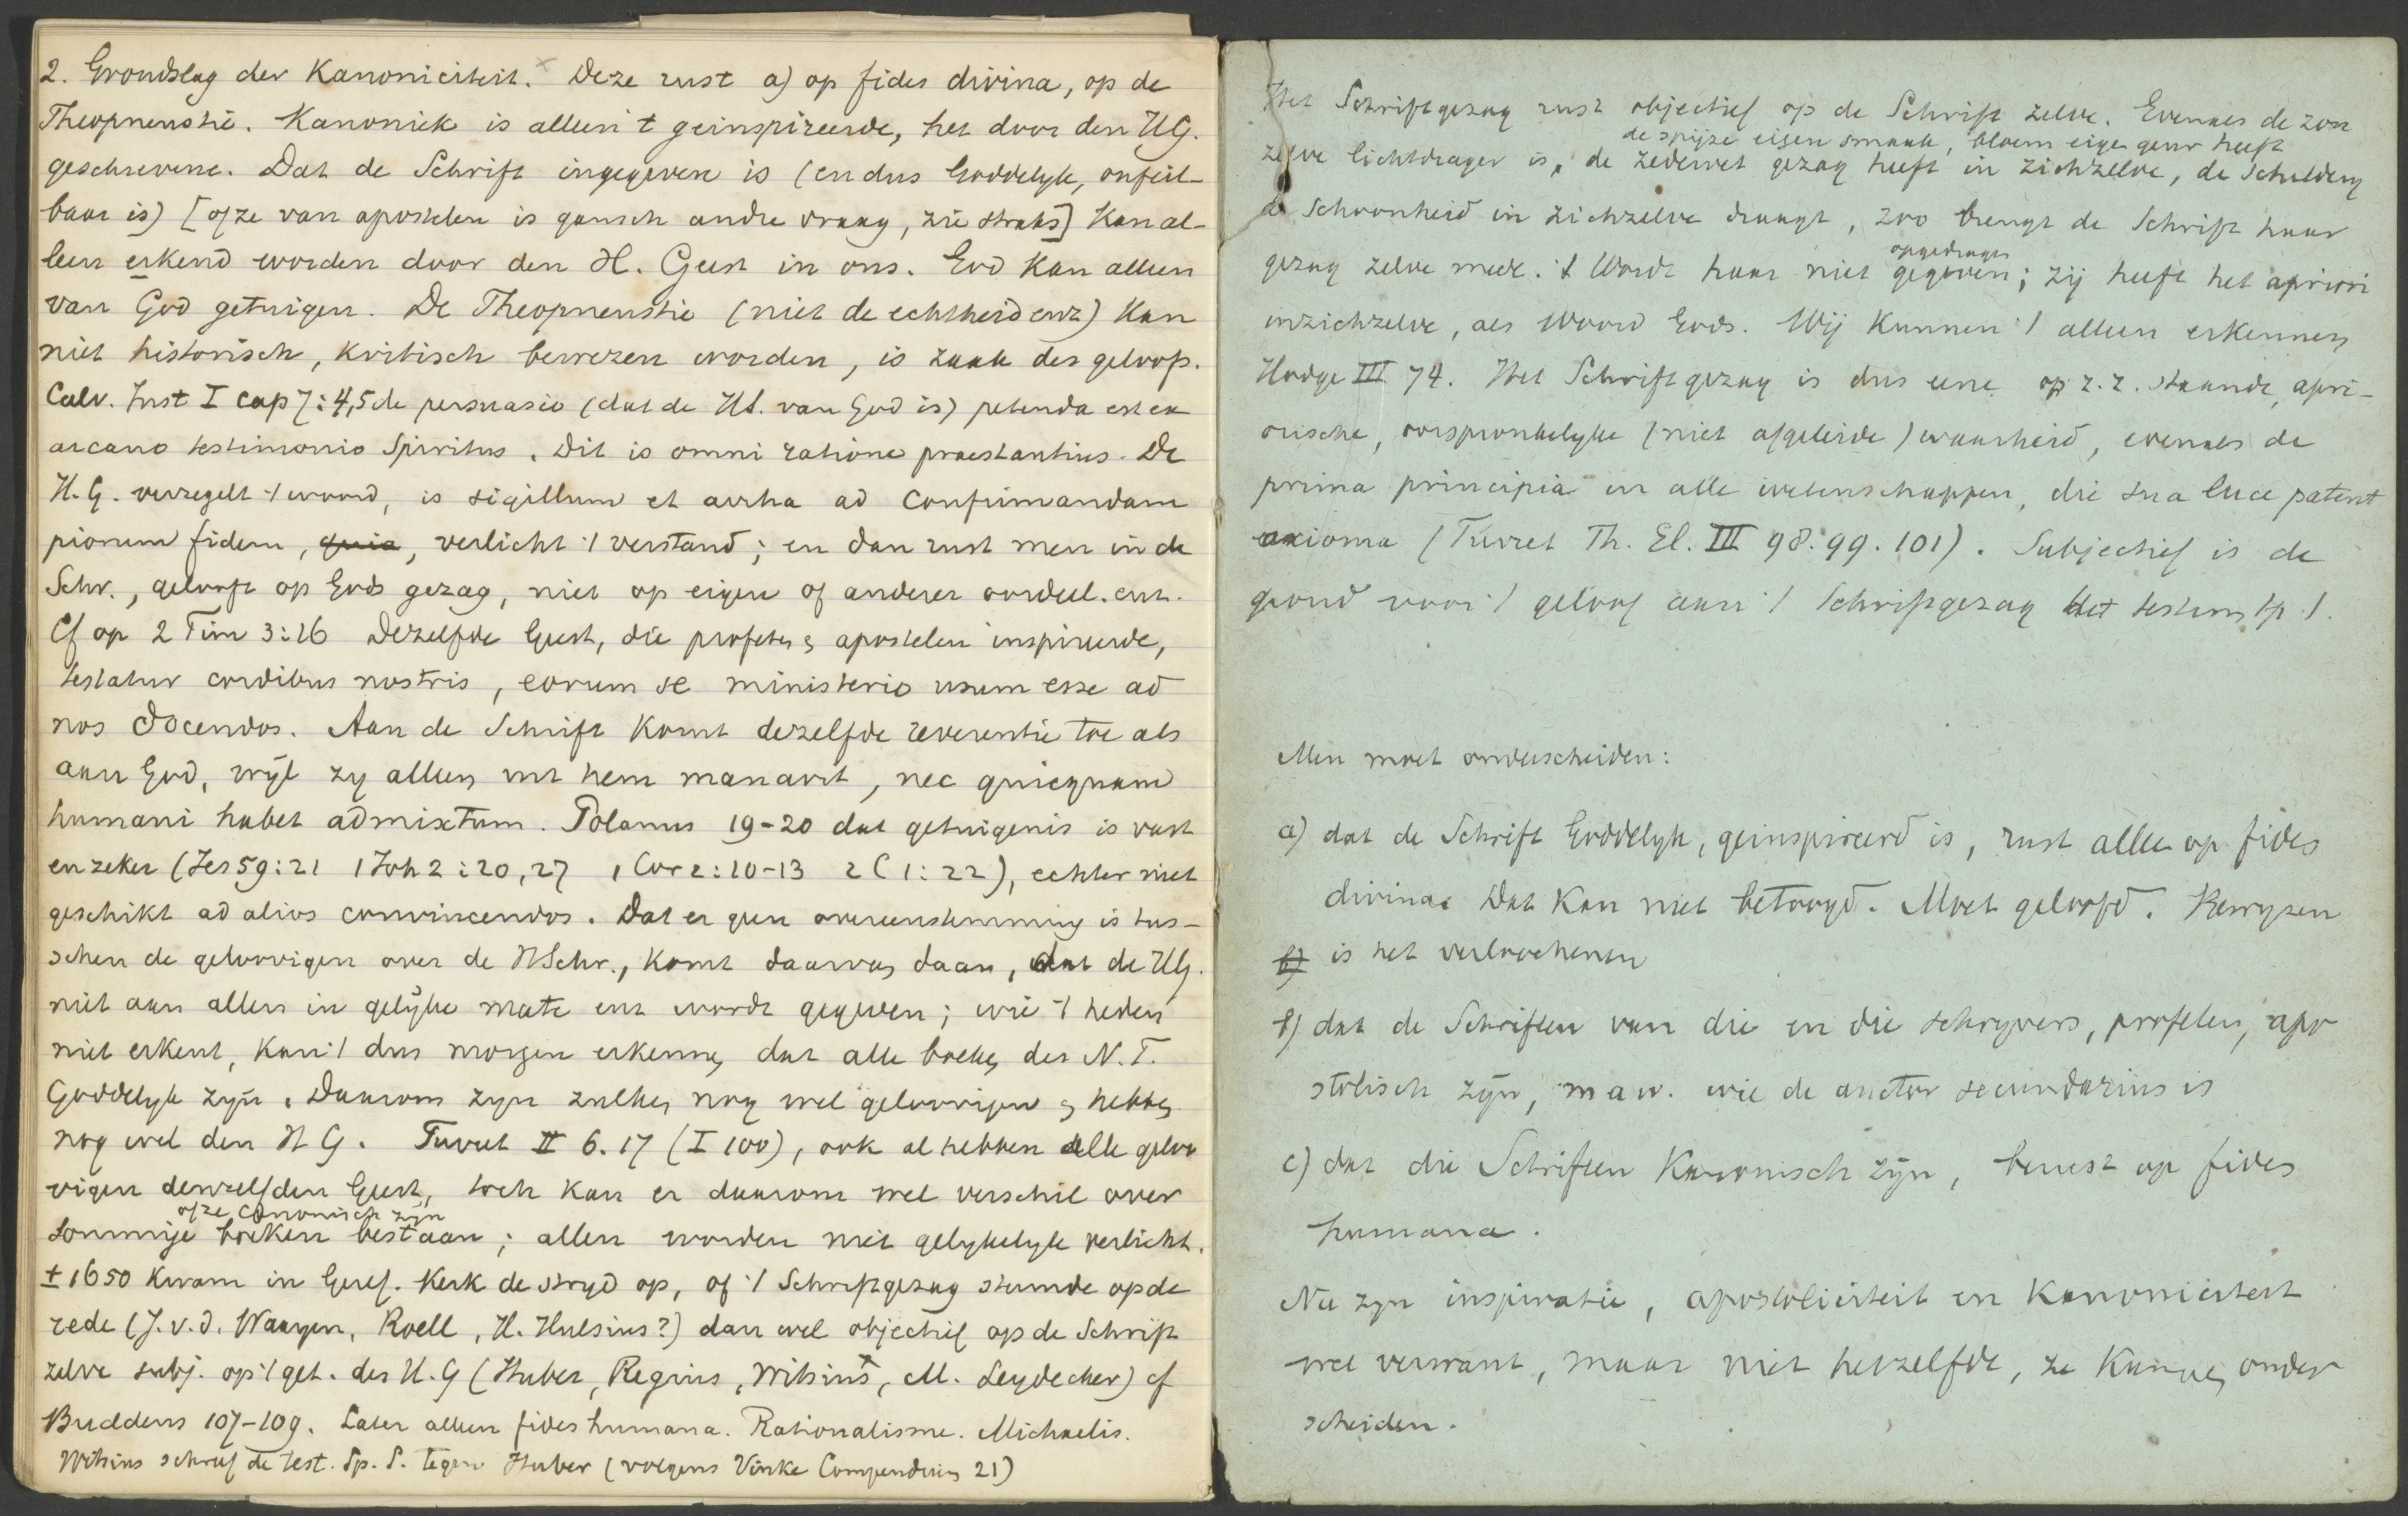 2. Grondslag der Kanoniciteit. x Deze rust a) op fides divina, op de
Theopneustie. Kanoniek is alleen 't geinspireerde, het door den H.G.
geschrevene. Dat de Schrift ingegeven is (en dus Goddelyk, onfeil-
baar is) [of ze van apostelen is gansch andre vraag, zie straks] kan al-
leen erkend worden door den H. Geest in ons. God kan alleen
van God getuigen. De Theopneustie (niet de echtheid enz) kan
niet historisch, kritisch bewezen worden, is zaak des geloofs.
Calv. Inst I cap 7:4,5 de persuasio (dat de HS. van God is) petenda est ex
arcano testimonio Spiritus. Dit is omni ratione praestantius. De
H.G. verzegelt 't woord, is sigillum et arrha ad confirmandam
piorum fidem, quia, verlicht 't verstand; en dan rust men in de
Schr., gelooft op Gods gezag, niet op eigen of anderer oordeel. enz.
Cf op 2 Tim 3:16 Dezelfde Geest, die profeten & apostelen inspireerde,
testatur cordibus nostris, eorum se ministerio usum esse ad
nos docendos. Aan de Schrift komt dezelfde reverentie toe als
aan God, wÿl zy alleen uit hem manavit, nec quicquam
humani habet admixtum. Polanus 19-20 dat getuigenis is vast
en zeker (Jes 59:21 1 Joh 2:20, 27 1 Cor 2:10-13 2 C 1:22), echter niet
geschikt ad alios convincendos. Dat er geen overeenstemming is tus-
schen de geloovigen over de HSchr., komt daarvan daan, dat de HG.
niet aan allen in gelÿke mate enz wordt gegeven; wie 't heden
niet erkent, kan 't dus morgen erkennen, dat alle boeken des N.T.
Goddelyk zyn. Daarom zyn zulken nog wel geloovigen & hebben
nog wel den H G. Turret II 6. 17 (I 100), ook al hebben alle geloo
vigen denzelfden Geest, toch kan er daarom wel verschil over
of ze canonisch zyn
sommige boeken bestaan; allen worden niet gelykelyk verlicht.
± 1650 kwam in Geref. Kerk de stryd op, of 't Schriftgezag steunde op de
rede (J. v. d. Waayen, Roell, H. Hulsius?) dan wel objectief op de Schrift
zelve subj. op 't get. des H. G (Huber, Regius, Witsius, M. Leydecker) cf
Buddeus 107-109. Later alleen fides humana. Rationalisme. Michaelis.
Witsius schreef de test. Sp. S. tegen Huber (volgens Vinke Compendium 21)
Het Schriftgezag rust objectief op de Schrift zelve. Evenals de zon
de spijze eigen smaak, bloem eigen geur heeft
zelve lichtdrager is, de zedewet gezag heeft in zichzelve, de schildery
de schoonheid in zichzelve draagt, zoo brengt de Schrift haar
opgedragen
gezag zelve mede. 't Wordt haar niet gegeven; zij heeft het apriori
in zichzelve, als Woord Gods. Wij kunnen 't alleen erkennen
Hodge III 74. Het Schriftgezag is dus eene op z. z. staande, apri-
orische, oorspronkelyke (niet afgeleide) waarheid, evenals de
prima principia in alle wetenschappen, die sua luce patent
axioma (Turret Th. El. III 98. 99. 101). Subjectief is de
grond voor 't geloof aan 't Schriftgezag het testim Sp. S.
Men moet onderscheiden:
a) dat de Schrift Goddelyk, geinspireerd is, rust alleen op fides
divina. Dat kan niet betoogd. Moet geloofd. Bewyzen
b) is het verloochenen
b) dat de Schriften van die en die schryvers, profeten, apo
stolisch zÿn, m a w. wie de auctor secundarius is
c) dat die Schriften Kanonisch zÿn, berust op fides
humana.
Nu zyn inspiratie, apostoliciteit en Kanoniciteit
wel verwant, maar niet hetzelfde, ze kunnen onder
scheiden.